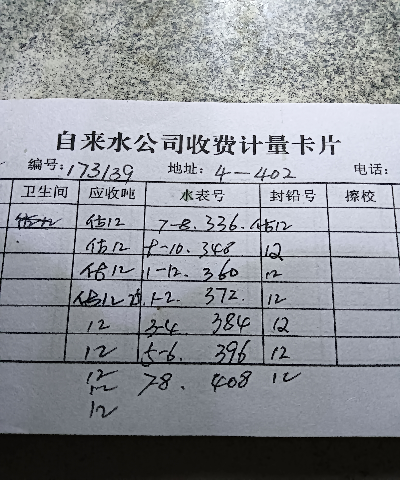 自来水公司收费计量卡片
编号:173139 地址:4-402 电话:
卫生间 应收吨 水表号 封铅号 擦校
估12 7-8. 336. 估12
估12 9-10. 348 12
估12 11-12. 360 12
估12 1-2. 372. 12
12 3-4 384 12
12 5-6. 396 12
12 7-8. 408 12
12
12